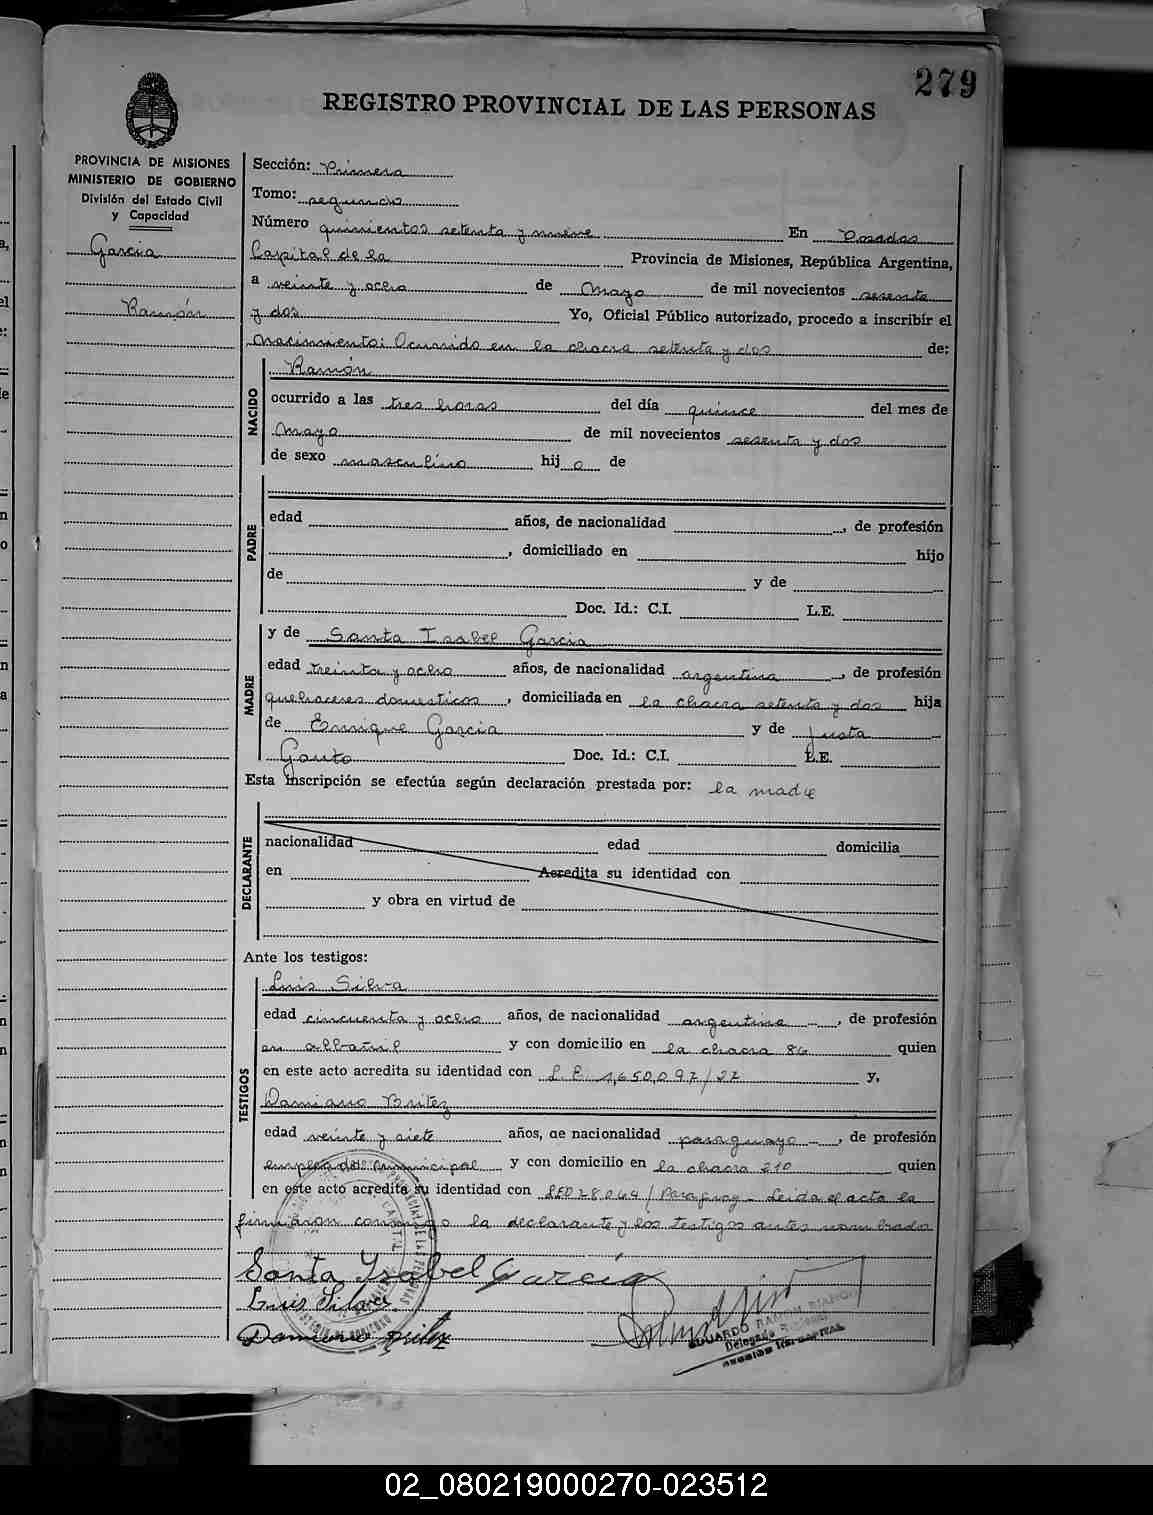 279
REGISTRO PROVINCIAL DE LAS PERSONAS
PROVINCIA DE MISIONES
MINISTERIO DE GOBIERNO
División del Estado Civil
y Capacidad
Garcia
Ramón
Sección: Primera
Tomo: segundo
Número quinientos setenta y nueve En Posadas
Capital de la Provincia de Misiones, República Argentina,
a veinte y ocho de Mayo de mil novecientos sesenta
y dos Yo, Oficial Público autorizado, procedo a inscribir el
Nacimiento: Ocurrido en la chacra setenta y dos de:
NACIDO
Ramón
ocurrido a las tres horas del día quince del mes de
Mayo de mil novecientos sesenta y dos
de sexo masculino hij o de
PADRE
edad años, de nacionalidad , de profesión
, domiciliado en hijo
de y de
Doc. Id.: C.I. L.E.
MADRE
y de Santa Isabel Garcia
edad treinta y ocho años, de nacionalidad argentina , de profesión
quehaceres domesticos , domiciliada en la chacra setenta y dos hija
de Enrique Garcia y de Justa
Gauto Doc. Id.: C.I. L.E.
Esta inscripción se efectúa según declaración prestada por: la madre
DECLARANTE
nacionalidad edad domicilia
en Acredita su identidad con
y obra en virtud de
Ante los testigos:
TESTIGOS
Luis Silva
edad cincuenta y ocho años, de nacionalidad argentina , de profesión
albañil y con domicilio en la chacra 86 quien
en este acto acredita su identidad con L.E. 1,650,097/27 y,
Damiano Britez
edad veinte y siete años, de nacionalidad paraguayo , de profesión
empleado municipal y con domicilio en la chacra 210 quien
en este acto acredita su identidad con Paraguay - Leida el acta la
firmaron conmigo la declarante y los testigos antes nombrados
Santa Ysabel Garcia
Luis Silva
Damiano Britez
EDUARDO RAMON BIANCHI
Delegado
02_080219000270-023512